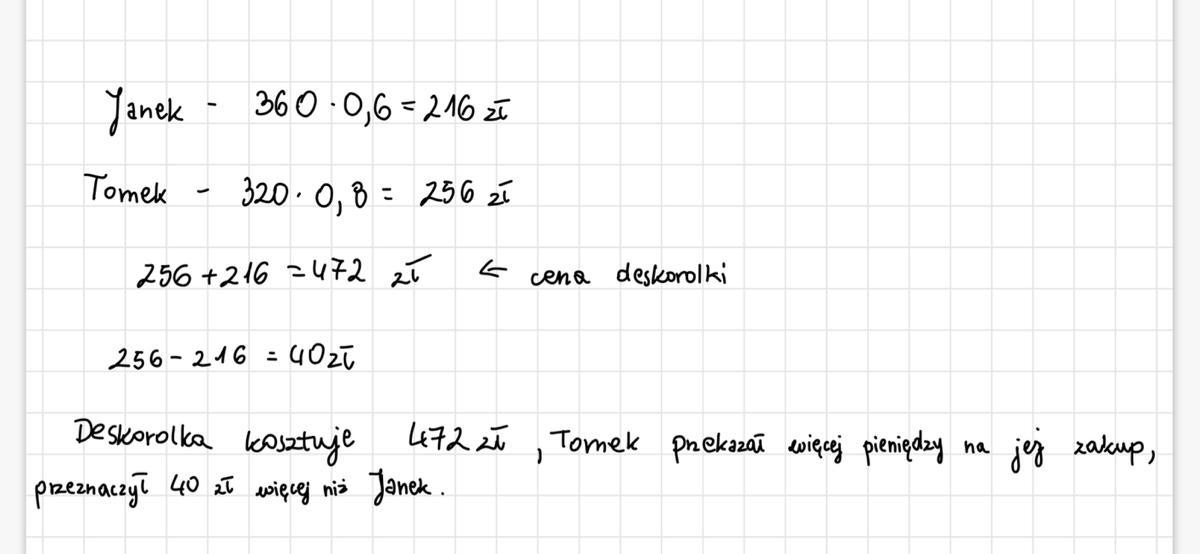 Janek - 360 · 0,6 = 216 zł
Tomek - 320 · 0,8 = 256 zł
256 + 216 = 472 zł ← cena deskorolki
256 - 216 = 40 zł
Deskorolka kosztuje 472 zł, Tomek przekazał więcej pieniędzy na jej zakup,
przeznaczył 40 zł więcej niż Janek.